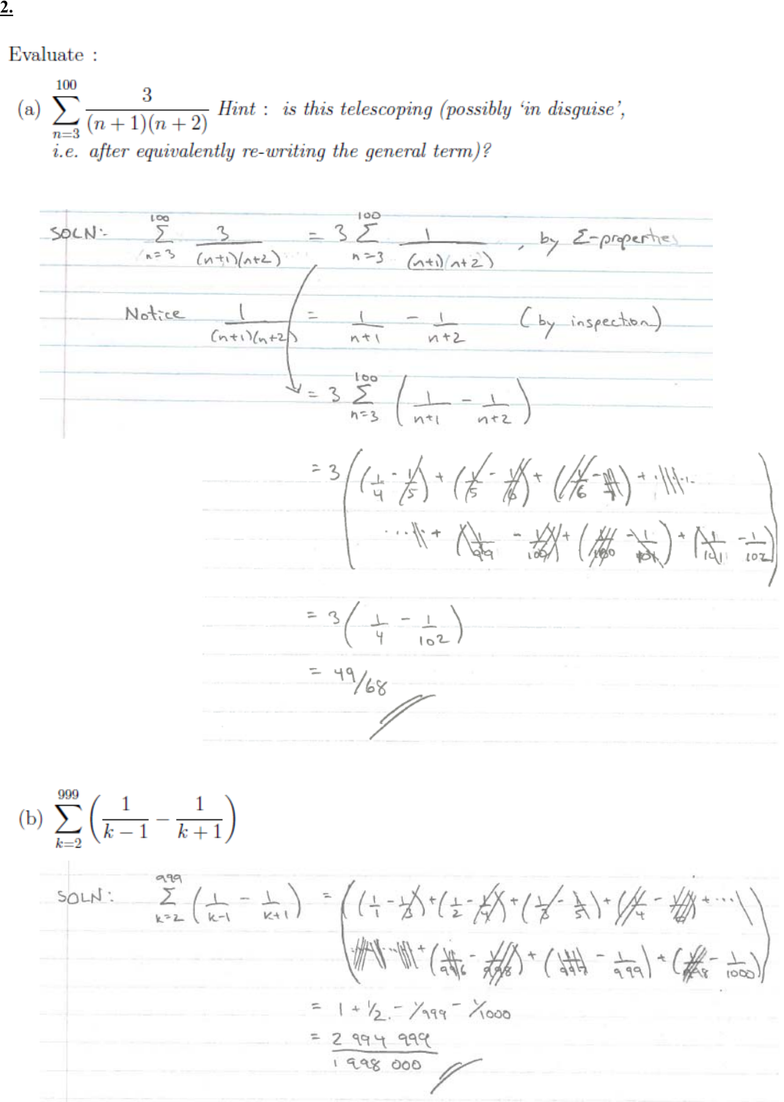 2.
Evaluate :
(a) \sum_{n=3}^{100} \frac{3}{(n+1)(n+2)} Hint : is this telescoping (possibly ‘in disguise’,
i.e. after equivalently re-writing the general term)?
SOLN:- \sum_{n=3}^{100} \frac{3}{(n+1)(n+2)} = 3 \sum_{n=3}^{100} \frac{1}{(n+1)(n+2)}, by Σ-properties
Notice \frac{1}{(n+1)(n+2)} = \frac{1}{n+1} - \frac{1}{n+2} (by inspection)
= 3 \sum_{n=3}^{100} ( \frac{1}{n+1} - \frac{1}{n+2} )
= 3 ( (\frac{1}{4} - \frac{1}{5}) + (\frac{1}{5} - \frac{1}{6}) + (\frac{1}{6} - \frac{1}{7}) + ....
.... + (\frac{1}{99} - \frac{1}{100}) + (\frac{1}{100} - \frac{1}{101}) + (\frac{1}{101} - \frac{1}{102}) )
= 3 ( \frac{1}{4} - \frac{1}{102} )
= 49/68
(b) \sum_{k=2}^{999} ( \frac{1}{k-1} - \frac{1}{k+1} )
SOLN: \sum_{k=2}^{999} ( \frac{1}{k-1} - \frac{1}{k+1} ) = ( (\frac{1}{1} - \frac{1}{3}) + (\frac{1}{2} - \frac{1}{4}) + (\frac{1}{3} - \frac{1}{5}) + (\frac{1}{4} - \frac{1}{6}) + ...
... + (\frac{1}{996} - \frac{1}{998}) + (\frac{1}{997} - \frac{1}{999}) + (\frac{1}{998} - \frac{1}{1000}) )
= 1 + 1/2 - 1/999 - 1/1000
= \frac{2 994 999}{1 998 000}